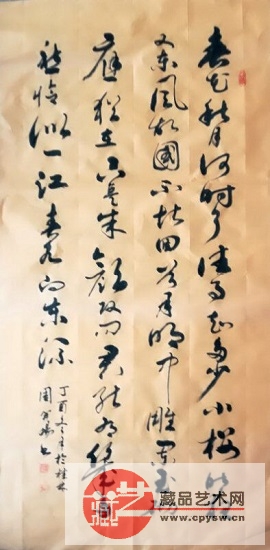 春花秋月何时了往事知多少小楼昨夜
又东风故国不堪回首月明中雕栏玉砌
应犹在只是朱颜改问君能有几多
愁恰似一江春水向东流
丁酉
于桂林
周
书
藏品艺术网
www.cpysw.cn